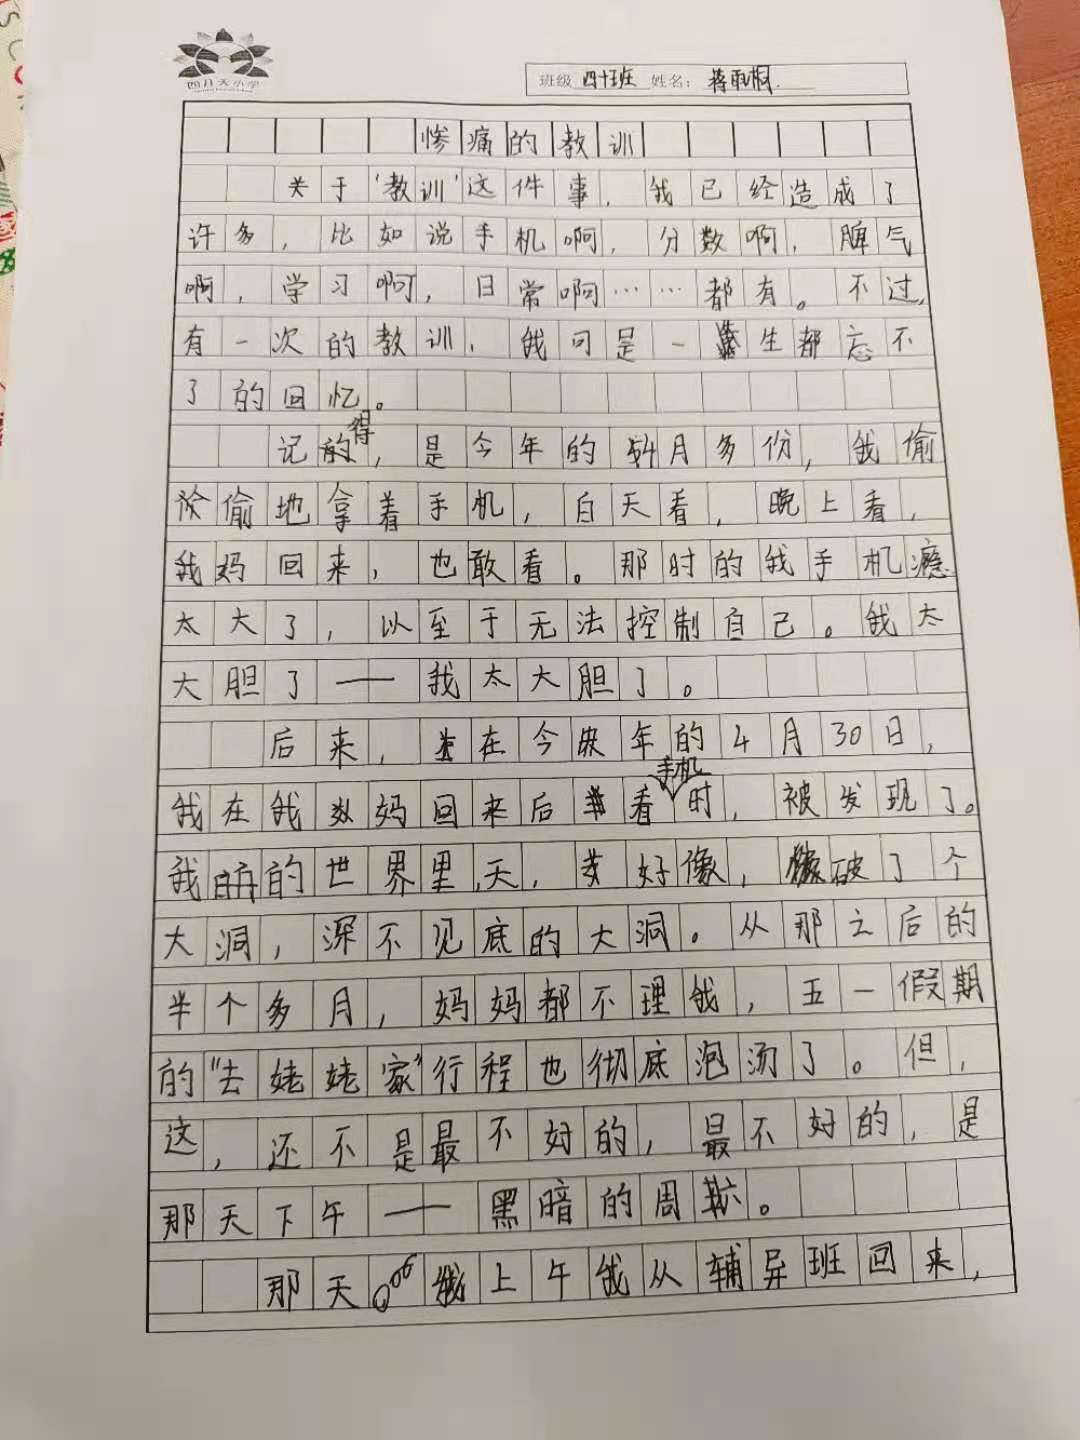 四月天小学
班级 四十班 姓名： 蒋雨桐
惨痛的教训
关于‘教训’这件事，我已经造成了
许多，比如说手机啊，分数啊，脾气
啊，学习啊，日常啊……都有。不过，
有一次的教训，我可是一生都忘不
了的回忆。
记得，是今年的4月多份，我偷
偷地拿着手机，白天看，晚上看，
我妈回来，也敢看。那时的我手机瘾
太大了，以至于无法控制自己。我太
大胆了——我太大胆了。
后来，在今年的4月30日，
我在我妈妈回来后看手机时，被发现了。
我的世界里，天，好像，破了个
大洞，深不见底的大洞。从那之后的
半个多月，妈妈都不理我，五一假期
的“去姥姥家”行程也彻底泡汤了。但，
这，还不是最不好的，最不好的，是
那天下午——黑暗的周六。
那天上午我从辅导班回来，